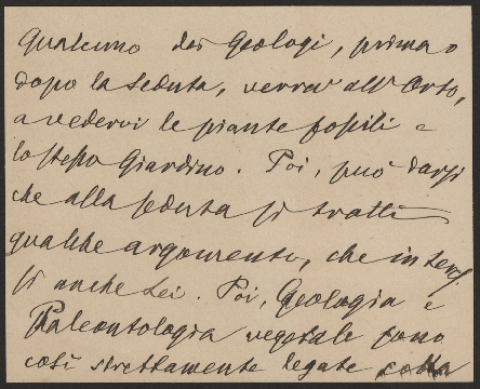 Qualcuno dei Geologi, prima o
dopo la seduta, verrà all'Orto,
a vedervi le piante fossili e
lo stesso Giardino. Poi, può darsi
che alla seduta si tratti
qualche argomento, che interes
si anche Lei. Poi, Geologia e
Paleontologia vegetale sono
così strettamente legate colla